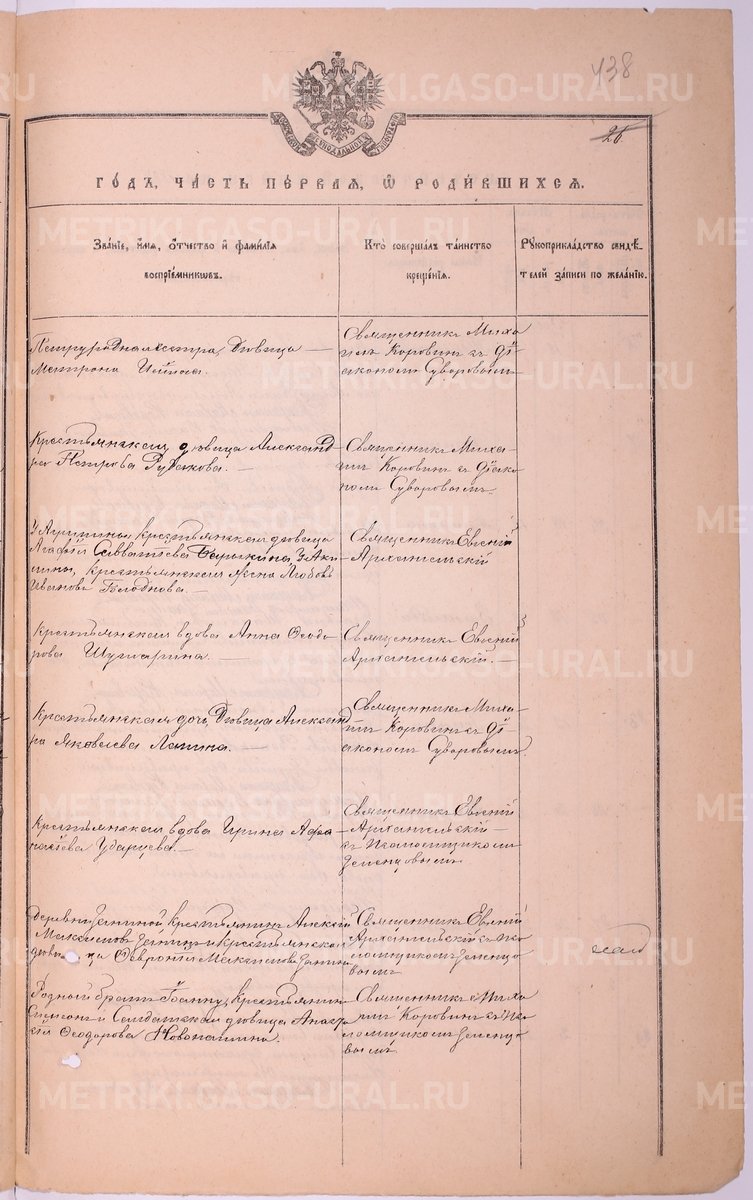 438
26
ГОДЪ, ЧАСТЬ ПЕРВАЯ, Ѡ РОДИВШИХСЯ.
Званіе, имя, отчество и фамилія
воспріемниковъ.
Кто совершалъ таинство
крещенія.
Рукоприкладство свидѣ-
телей записи по желанію.
Петру родная сестра, дѣвица
Матрона
Священникъ Миха
илъ Коровинъ съ Ді
акономъ Суворовымъ
Крестьянская дѣвица Александ
ра Петрова Русакова.
Священникъ Миха-
илъ Коровинъ съ Діак
ономъ Суворовымъ
крестьянская дѣвица
Агафья Савватіева У Аки
лины, крестьянская жена Любовь
Иванова
Священникъ Евгеній
Архангельскій
Крестьянская вдова Анна Ѳеодо
рова Шушарина.
Священникъ Евгеній
Архангельскій.
Крестьянская дочь, дѣвица Александ
ра Яковлева Лапина.
Священникъ Миха-
илъ Коровинъ съ Ді
акономъ Суворовымъ
Крестьянская вдова Ирина Аѳа
насіева Ударцева.
Священникъ Евгеній
Архангельскій
съ Псаломщикомъ
Земенцовымъ
Деревни Зениной, Крестьянинъ Алексѣй
Максимовъ Зенинъ и крестьянская
дѣвица Ѳеврония Максимова Зенина
Священникъ Евгеній
Архангельскій съ Пса
ломщикомъ Земенцо
вымъ
Родной братъ Іоанну, Крестьянинъ
Симеонъ и Солдатская дѣвица Анаста
сія Ѳеодорова Новопашина.
Священникъ Миха
илъ Коровинъ съ Пса
ломщикомъ Земенцо
вымъ
METRIKI.GASO-URAL.RU